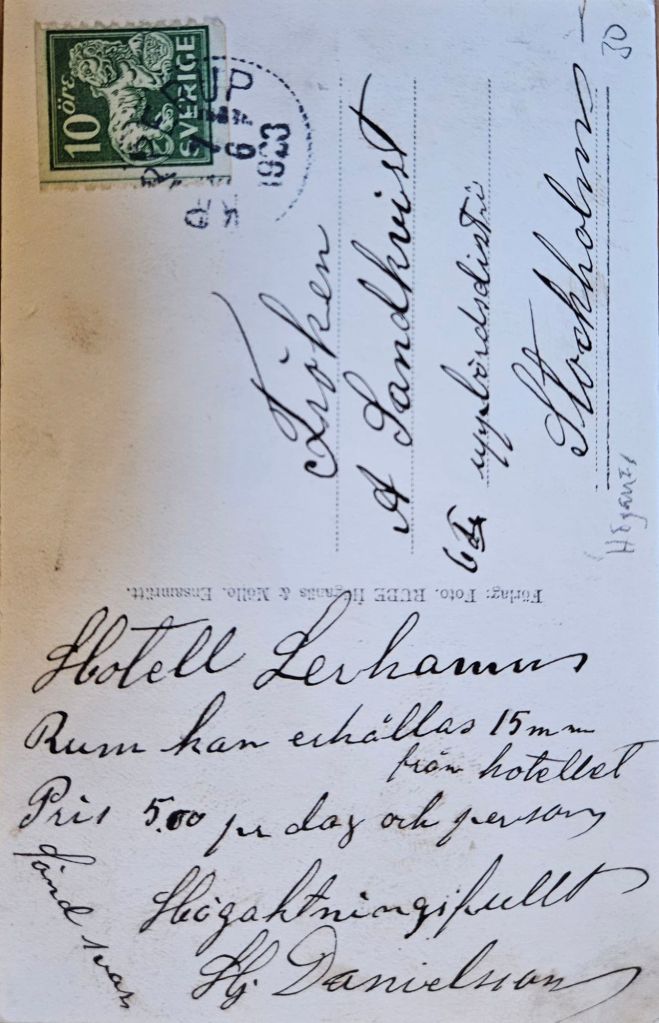 10 ÖRE
SVERIGE
7
6
1933
Fröken
A Sandkvist
6te uppbördsdistri
Stockholm
30
Höganäs
Förlag: Foto. RUDE Höganäs & Mölle. Ensamrätt.
Hotell Lerhamns
Rum kan erhållas 15 min
från hotellet
Pris 5.00 pr dag och person
Högaktningsfullt
Hj. Danielsson
sänd svar